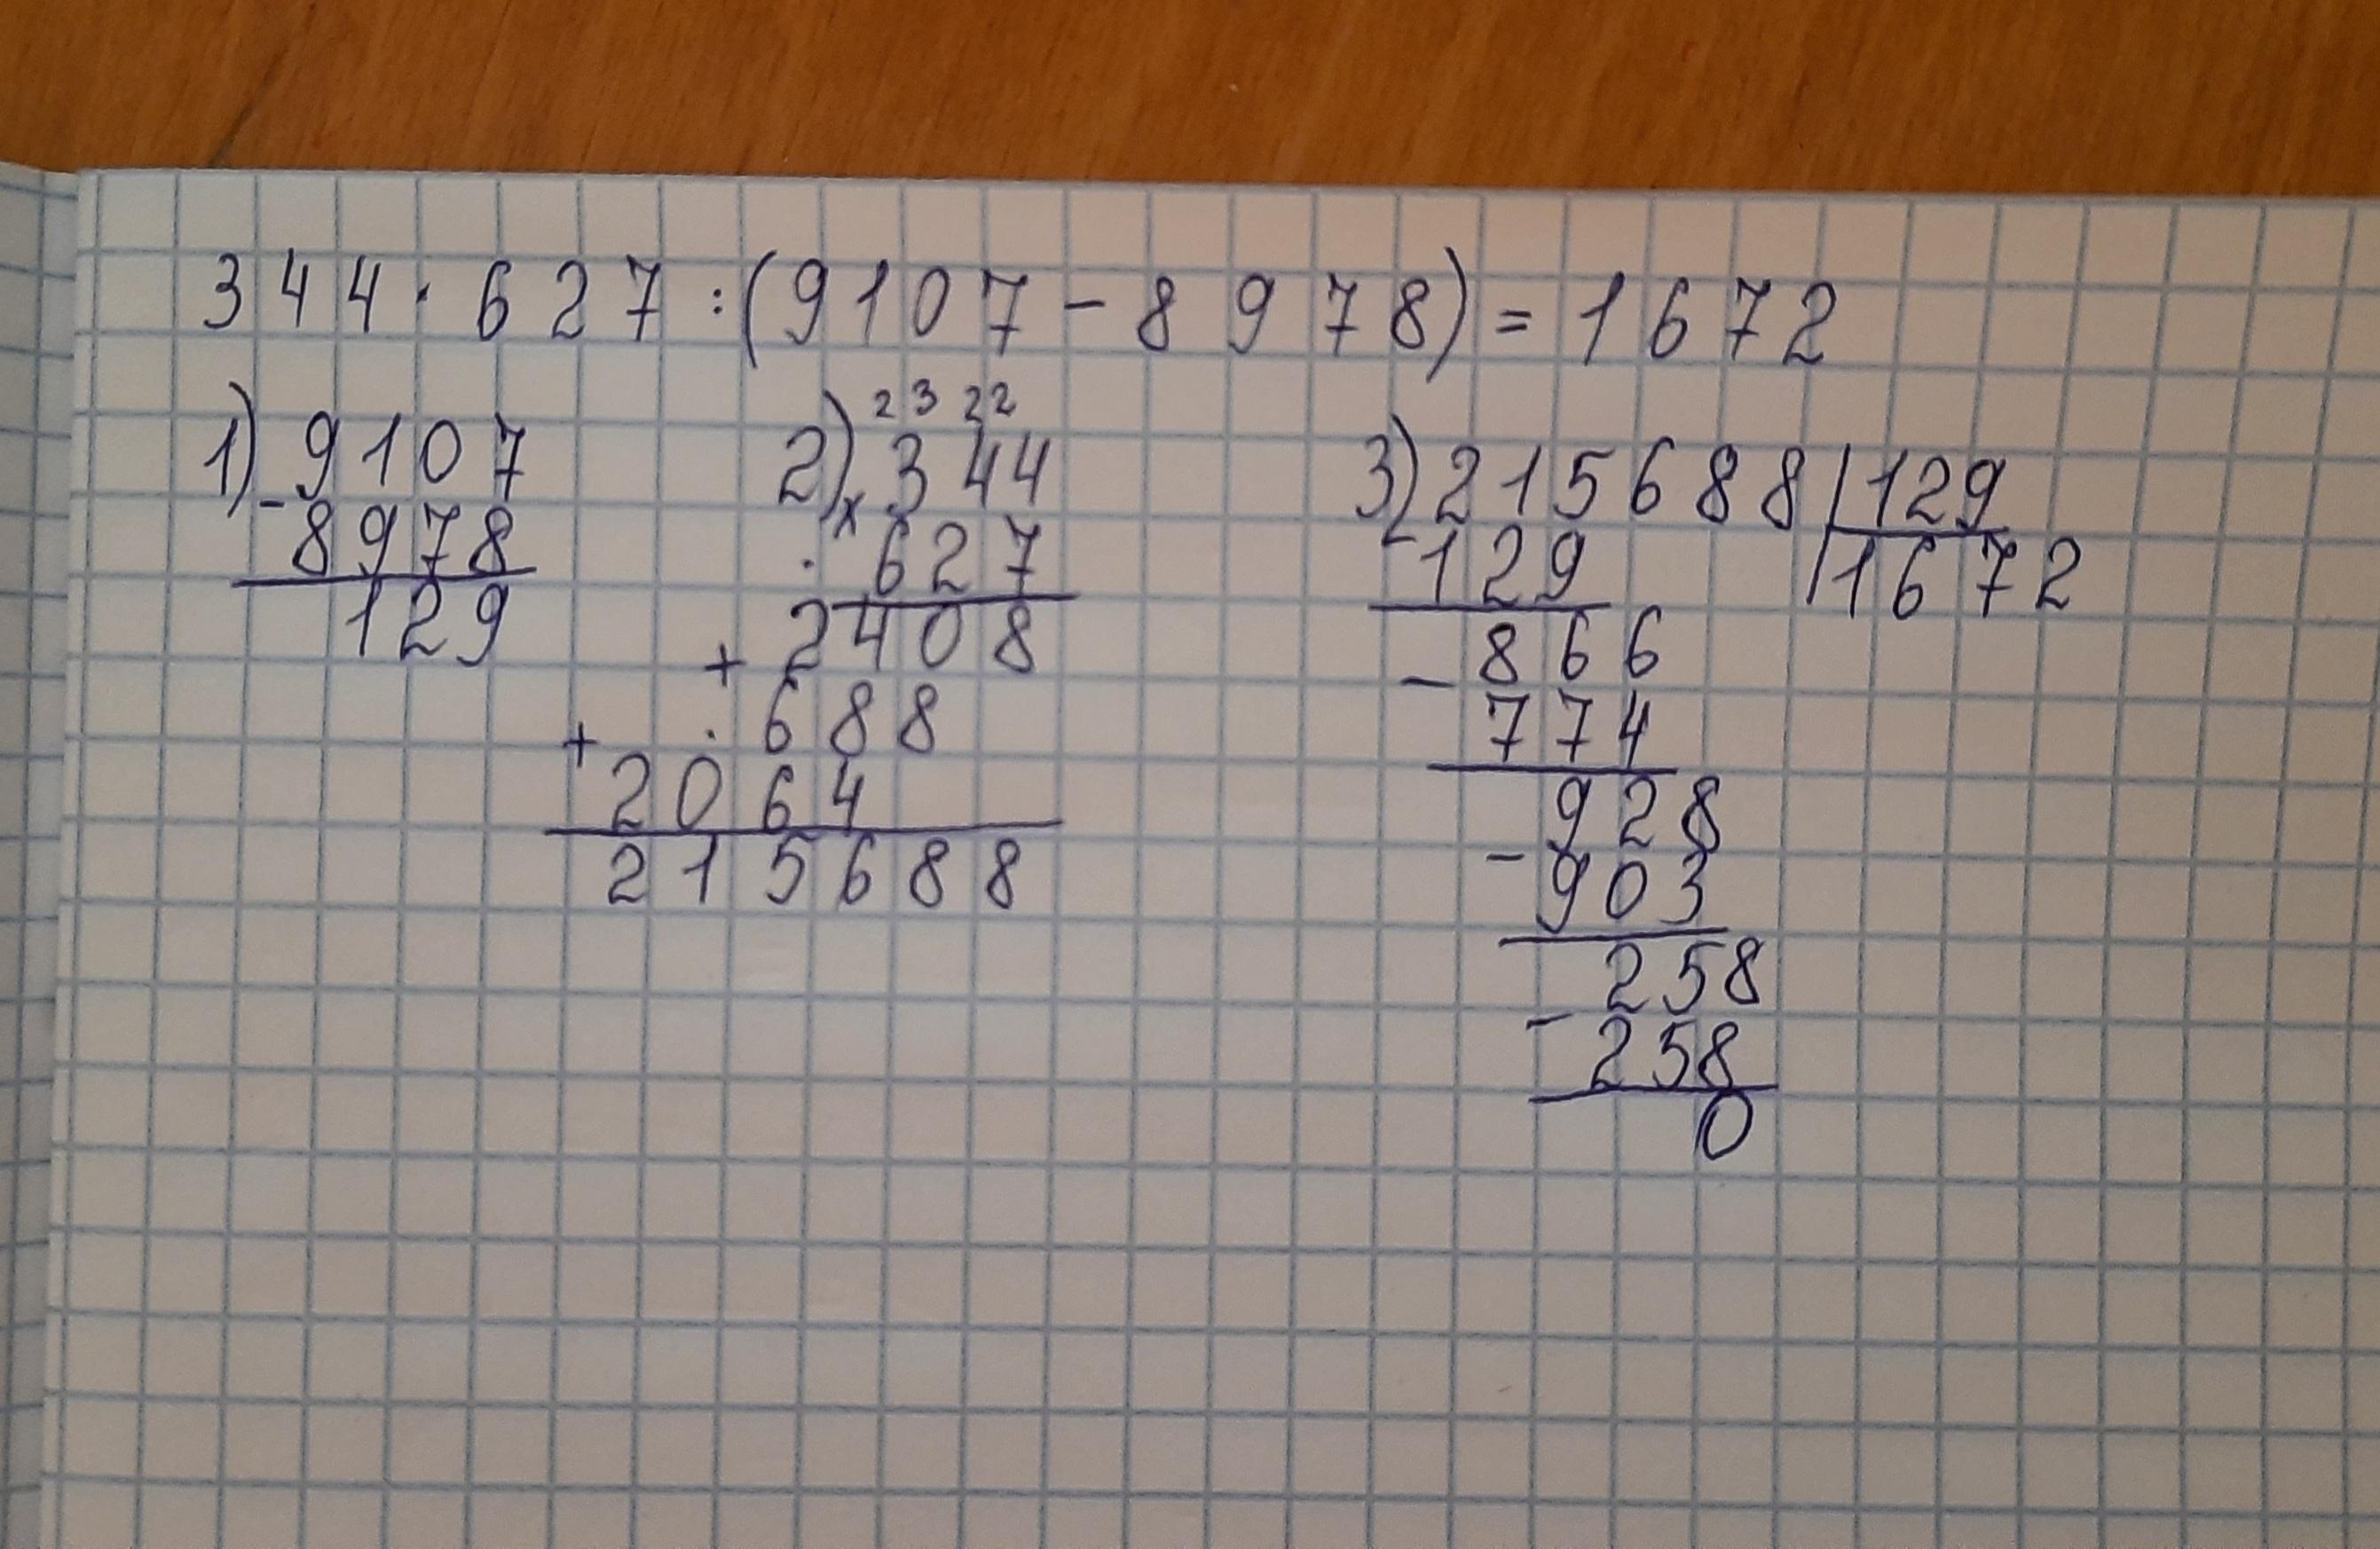 344·627:(9107-8978)=1672
1) -9107
8978
129
2) 23 22
x 344
· 627
+ 2408
+ · 688
2064
215688
3) -215688 | 129
129 | 1672
- 866
774
- 928
903
- 258
258
0